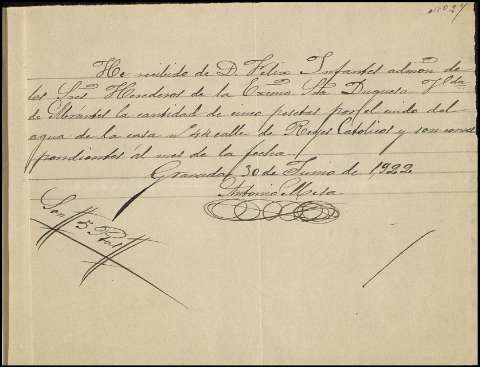 Nº 27
He recibido de D. Felix Infantes admon de
los Sres Herederos de la Excma Sra Duquesa Vda
de Abrantes la cantidad de cinco pesetas por el
agua de la casa nº 44 calle de Reyes Catolicos y son corres
pondientes al mes de la fecha.
Granada 30 de Junio de 1922
Antonio Mesa
Son 5 Ptas